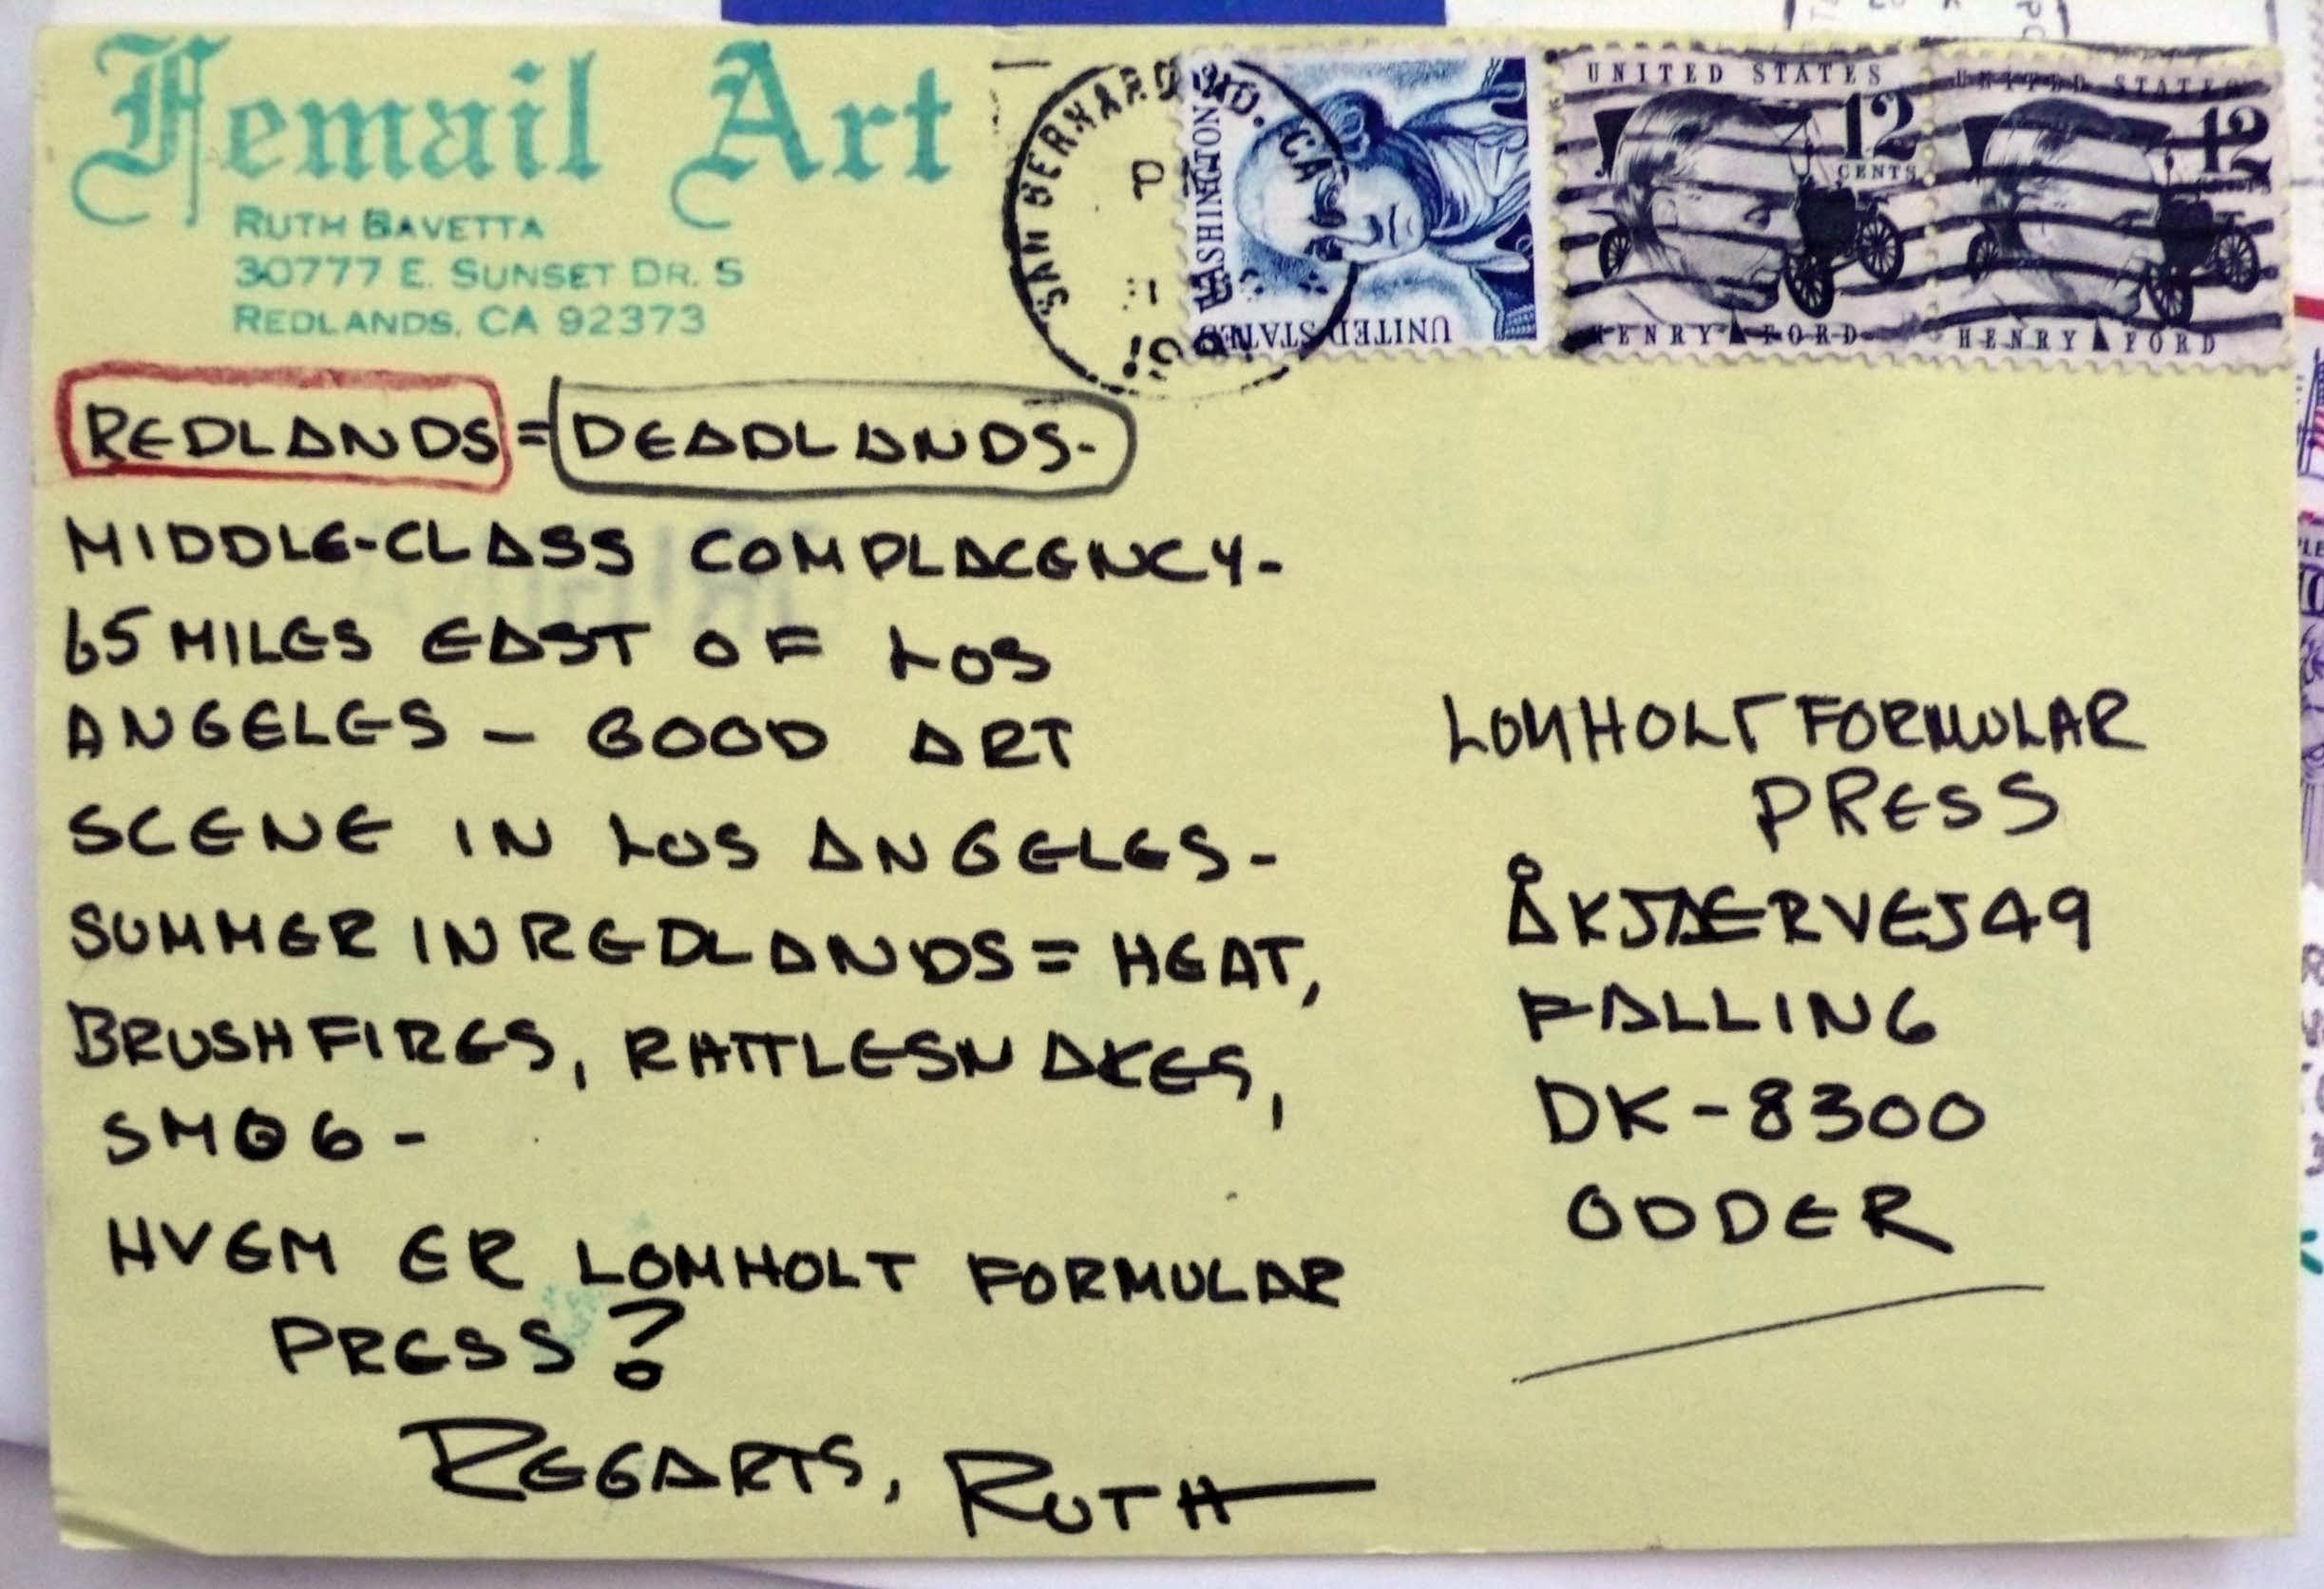 Femail Art
RUTH BAVETTA
30777 E. SUNSET DR. S
REDLANDS, CA 92373
SAN BERNARDINO. CA
WASHINGTON
UNITED STATES
UNITED STATES
12
CENTS
HENRY FORD
UNITED STATES
12
CENTS
HENRY FORD
REDLANDS = DEADLANDS-
MIDDLE-CLASS COMPLACENCY-
65 MILES EAST OF LOS
ANGELES - GOOD ART
SCENE IN LOS ANGELES-
SUMMER IN REDLANDS = HEAT,
BRUSHFIRES, RATTLESNAKES,
SMOG -
HVEM ER LOMHOLT FORMULAR
PRESS?
REGARTS, RUTH
LOMHOLT FORMULAR
PRESS
ÅKJÆRVEJ 49
FALLING
DK-8300
ODDER